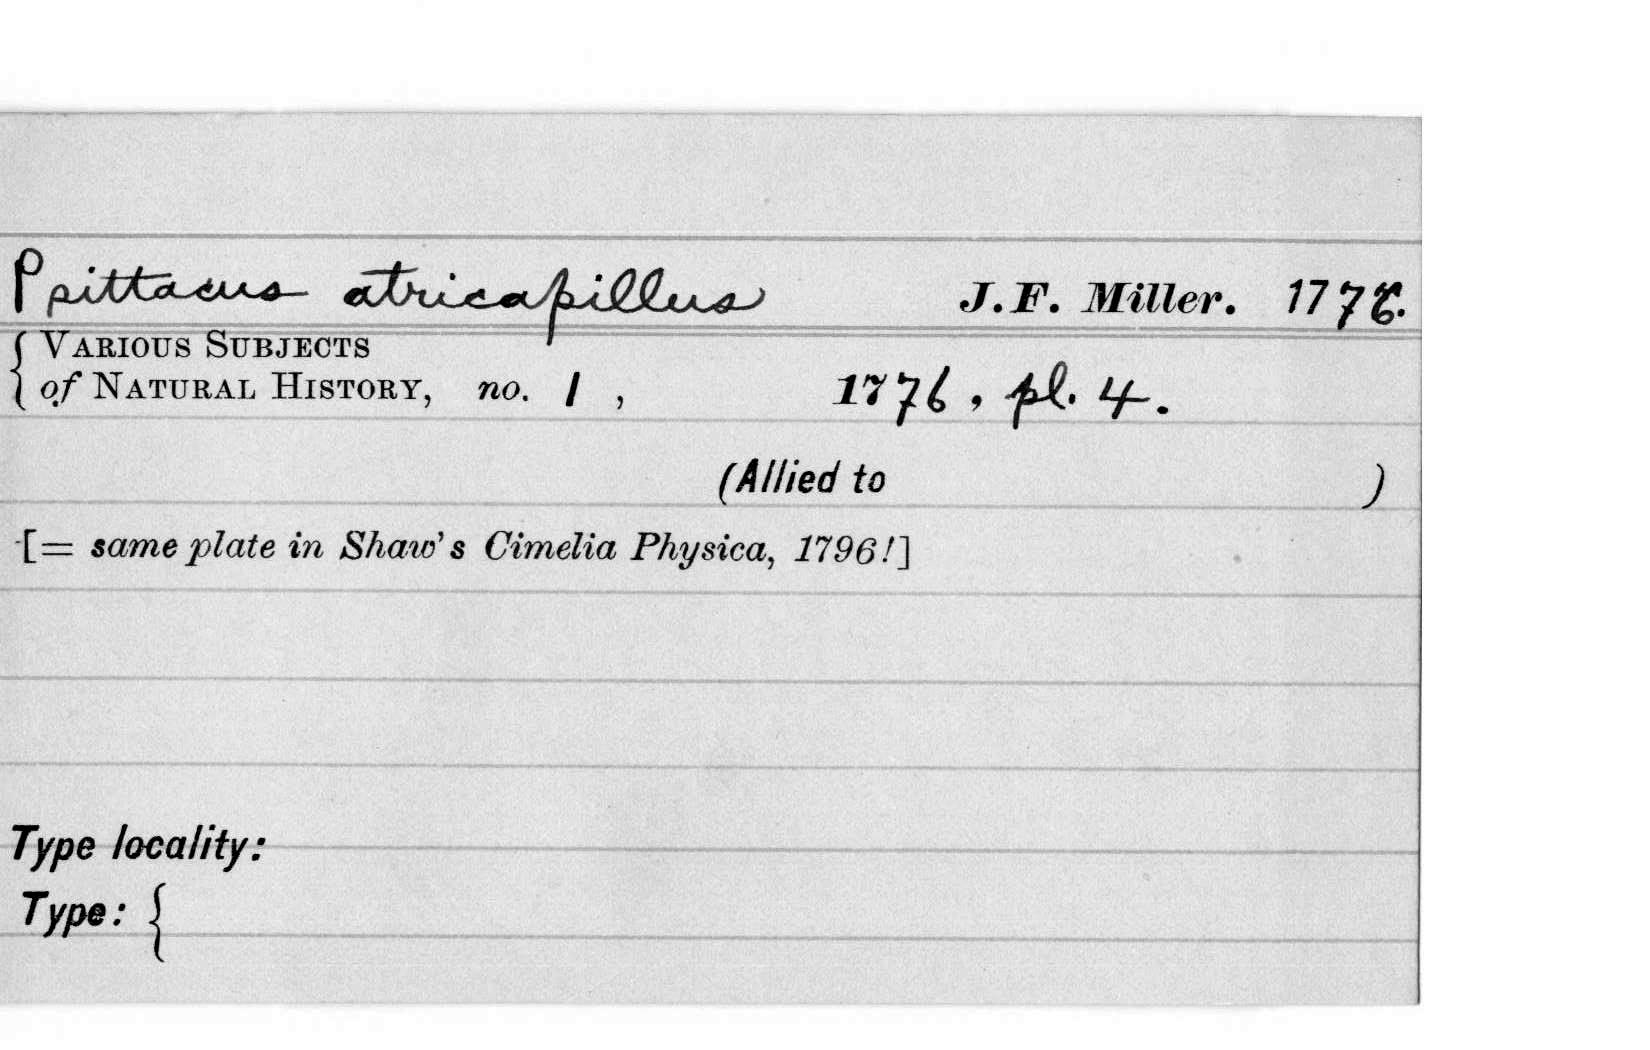 Psittacus atricapillus J. F. Miller. 1776.
{ VARIOUS SUBJECTS
of NATURAL HISTORY, no. 1, 1776, pl. 4.
(Allied to )
[= same plate in Shaw's Cimelia Physica, 1796!]
Type locality:
Type: {